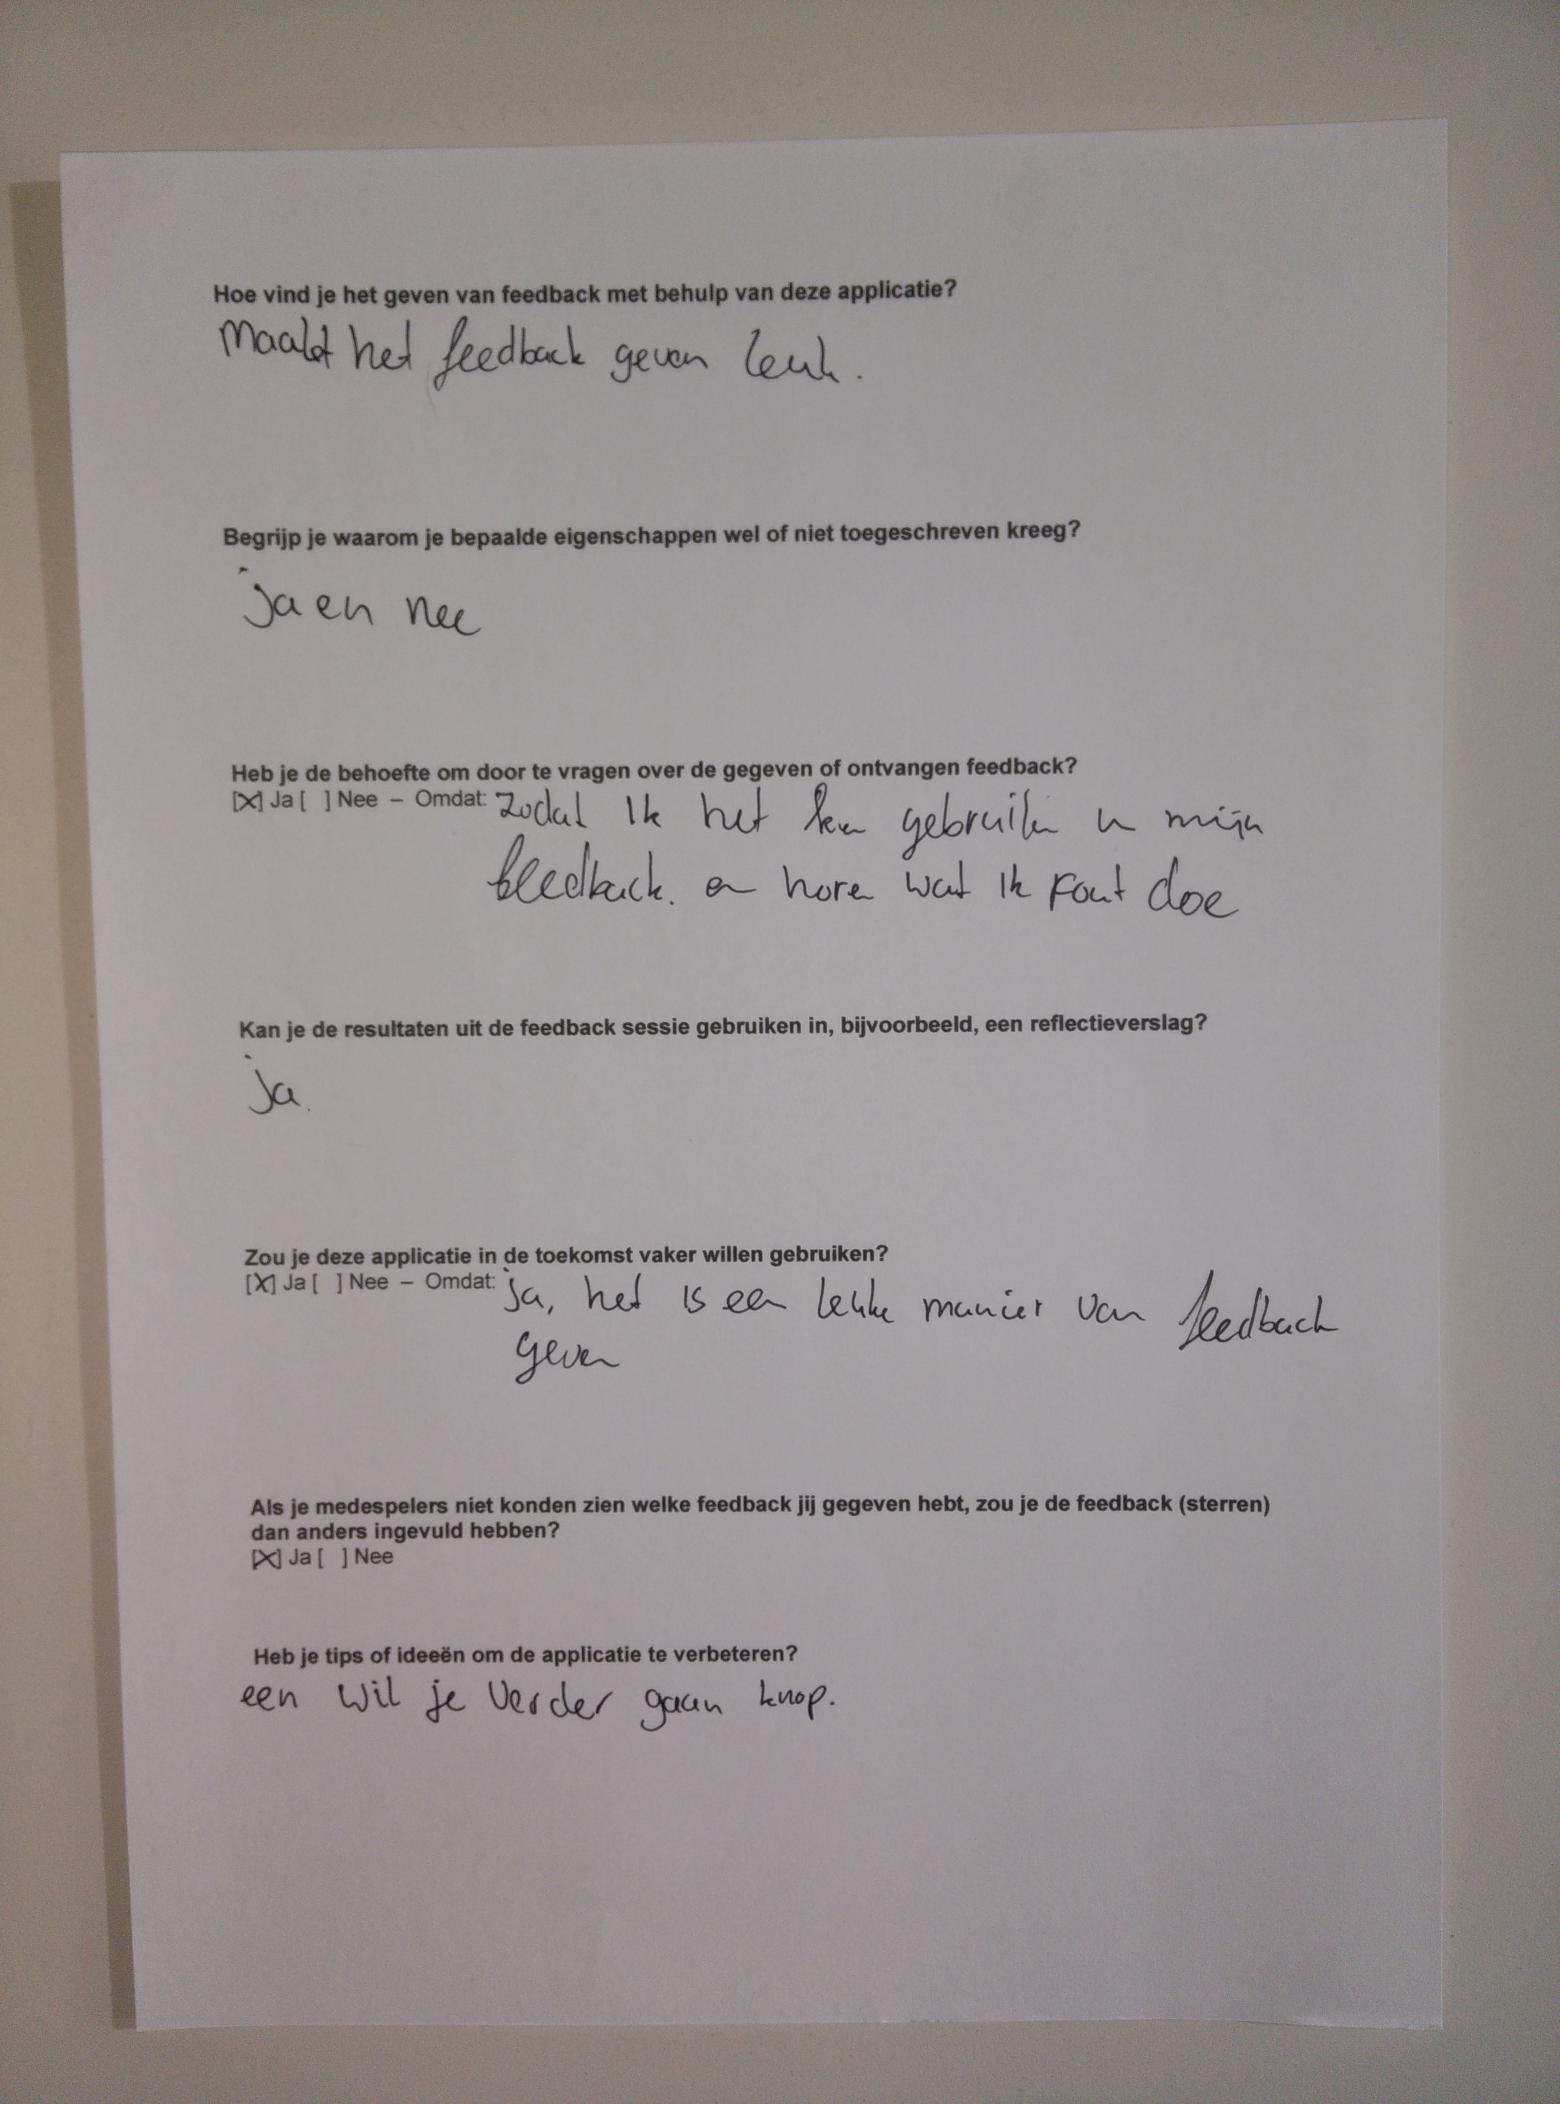 Hoe vind je het geven van feedback met behulp van deze applicatie?
Maakt het feedback geven leuk.
Begrijp je waarom je bepaalde eigenschappen wel of niet toegeschreven kreeg?
ja en nee
Heb je de behoefte om door te vragen over de gegeven of ontvangen feedback?
[X] Ja [ ] Nee – Omdat: Zodat ik het kan gebruiken in mijn
feedback. en horen wat ik fout doe
Kan je de resultaten uit de feedback sessie gebruiken in, bijvoorbeeld, een reflectieverslag?
ja.
Zou je deze applicatie in de toekomst vaker willen gebruiken?
[X] Ja [ ] Nee – Omdat: ja, het is een leuke manier van feedback
geven
Als je medespelers niet konden zien welke feedback jij gegeven hebt, zou je de feedback (sterren)
dan anders ingevuld hebben?
[X] Ja [ ] Nee
Heb je tips of ideeën om de applicatie te verbeteren?
een wil je verder gaan knop.